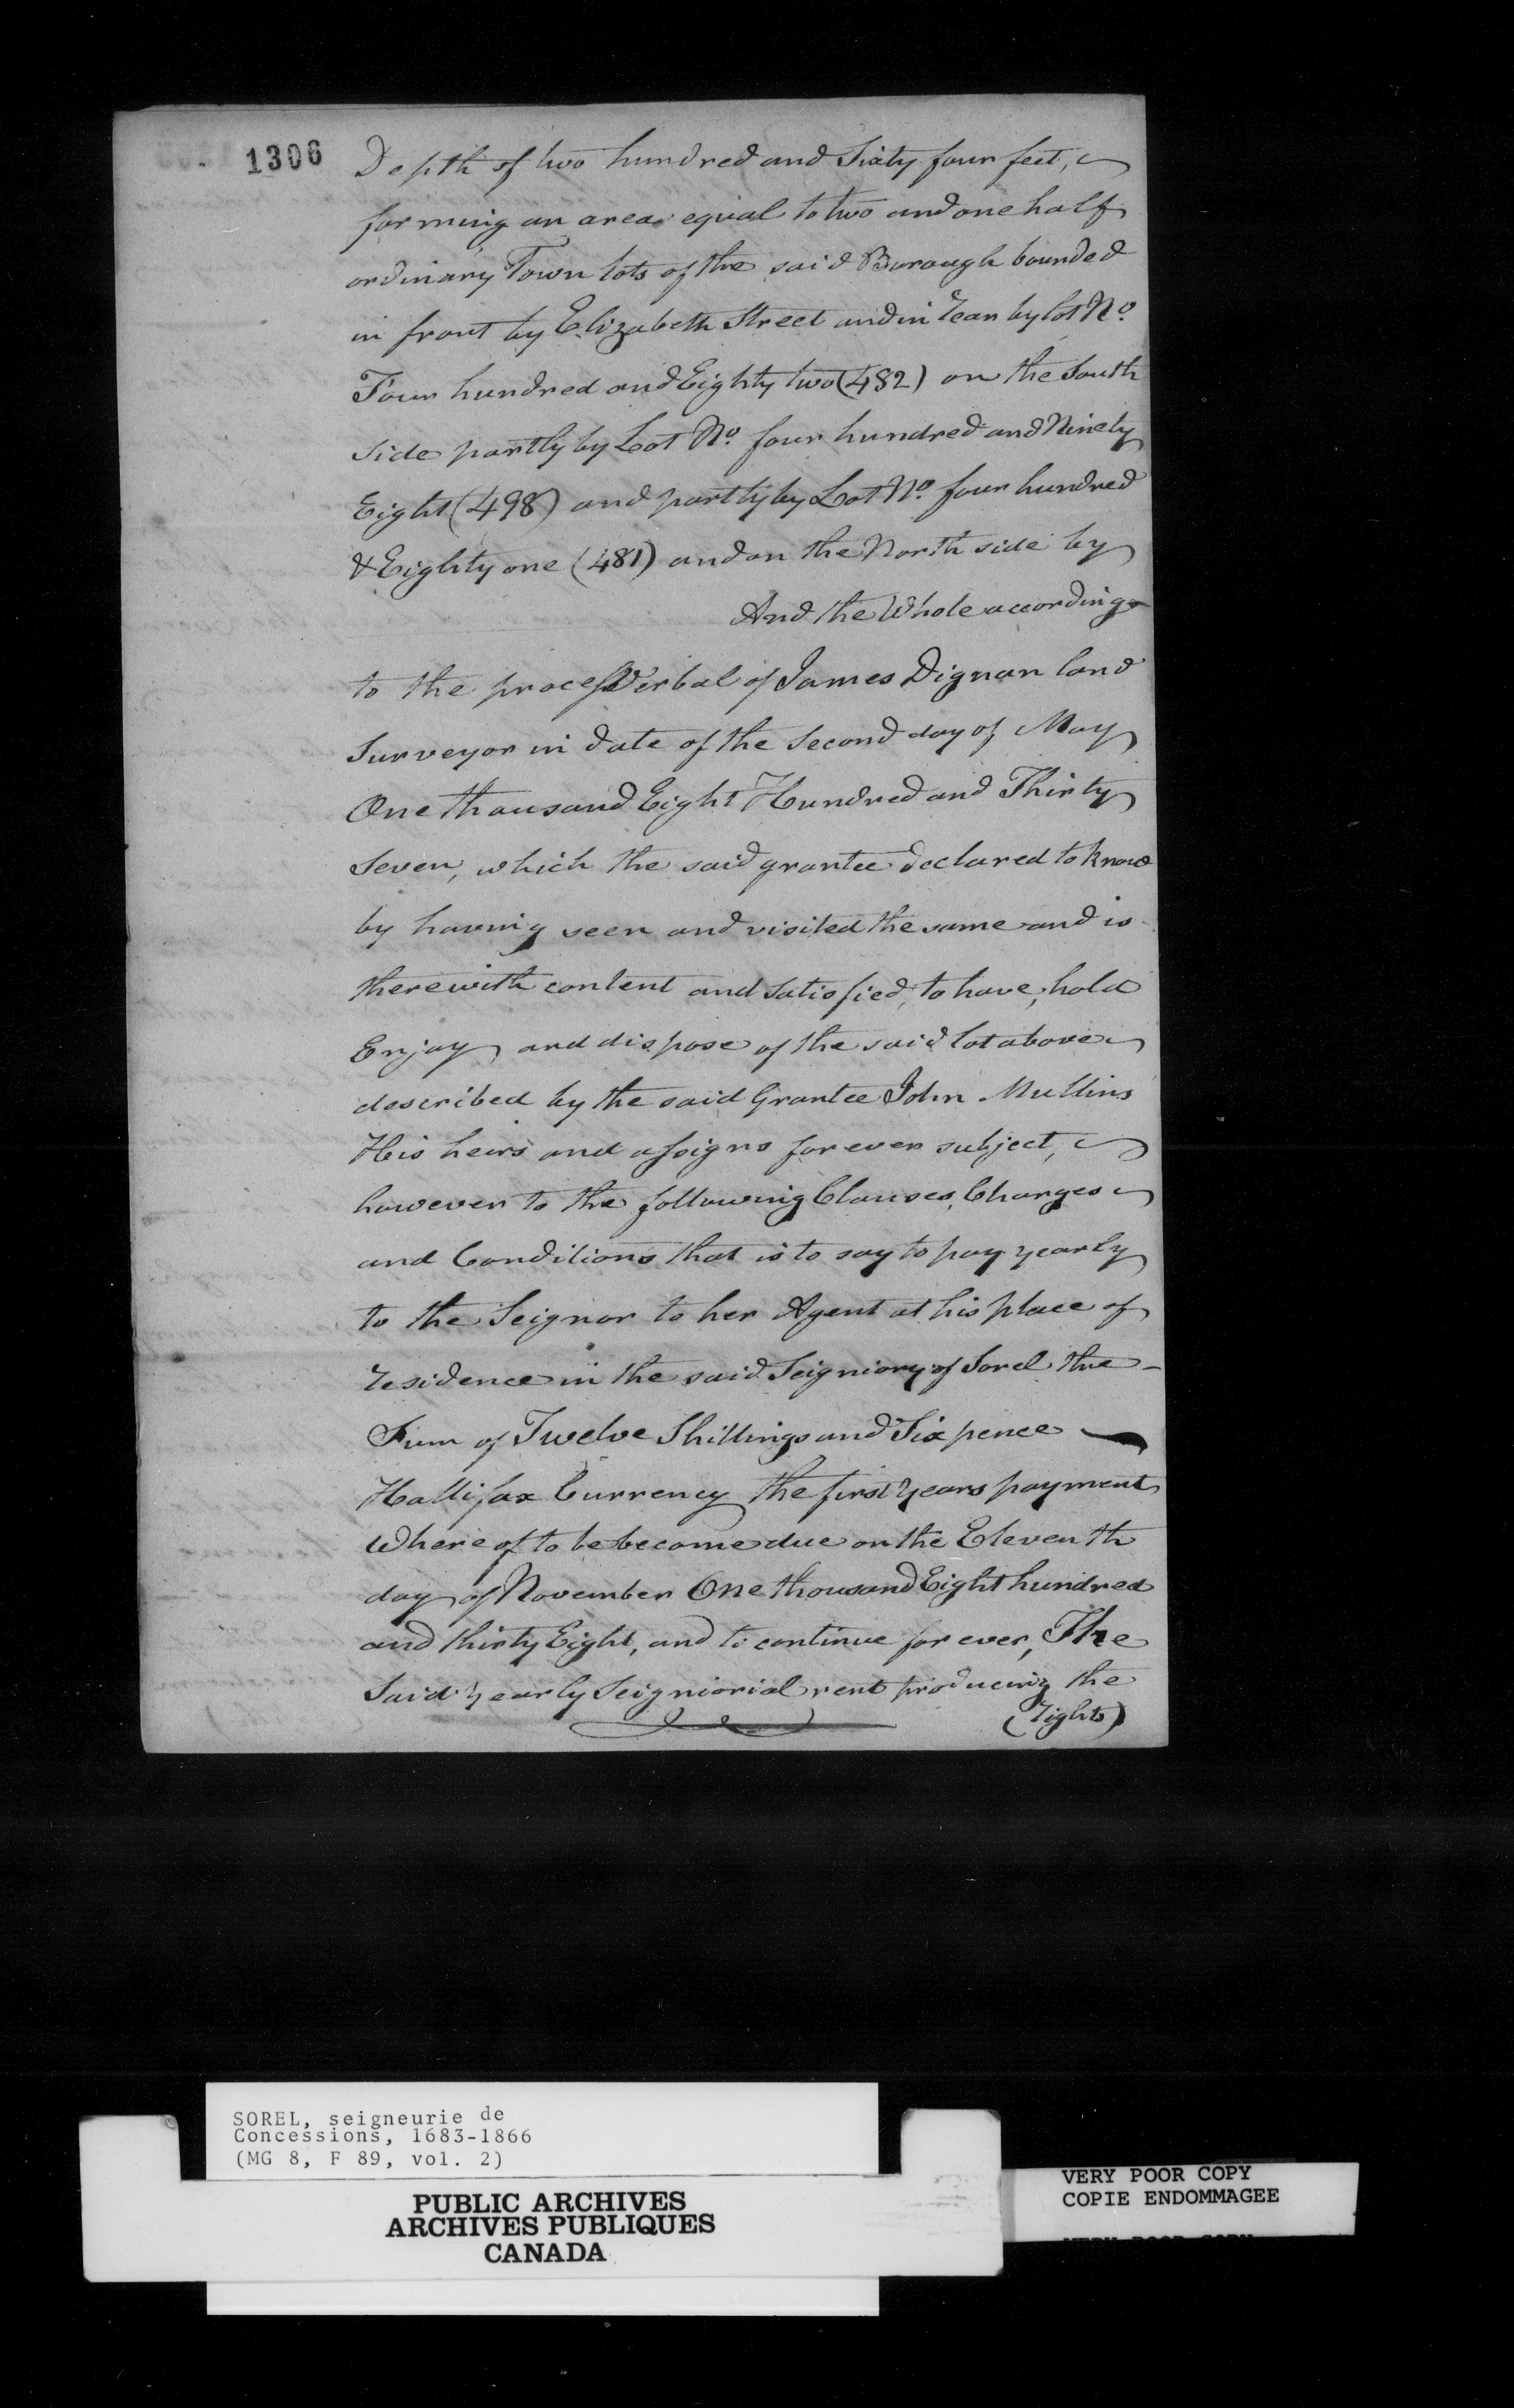 1306
Depth of two hundred and Sixty four feet,
forming an area equal to two and one half
ordinary Town lots of the said Borough bounded
in front by Elizabeth Street and in rear by lot No.
Four hundred and Eighty two (482) on the South
side partly by Lot No. four hundred and Ninety
Eight (498) and partly by Lot No. four hundred
& Eighty one (481) and on the North side by
And the Whole according
to the process Verbal of James Dignan land
Surveyor in date of the Second day of May
One thousand Eight Hundred and Thirty
Seven, which the said grantee declared to know
by having seen and visited the same and is
therewith content and satisfied, to have, hold
Enjoy and dispose of the said lot above
described by the said Grantee John Mullins
His heirs and assigns for ever subject,
however to the following Clauses, Charges
and Conditions that is to say to pay yearly
to the Seignor to her Agent at his place of
residence in the said Seigniory of Sorel the
Sum of Twelve Shillings and Six pence
Hallifax Currency the first years payment
Where of to be become due on the Eleventh
day of November One thousand Eight hundred
and thirty Eight, and to continue for ever, The
Said yearly Seigniorial rent producing the
(rights)
SOREL, seigneurie de
Concessions, 1683-1866
(MG 8, F 89, vol. 2)
PUBLIC ARCHIVES
ARCHIVES PUBLIQUES
CANADA
VERY POOR COPY
COPIE ENDOMMAGEE
VERY POOR COPY